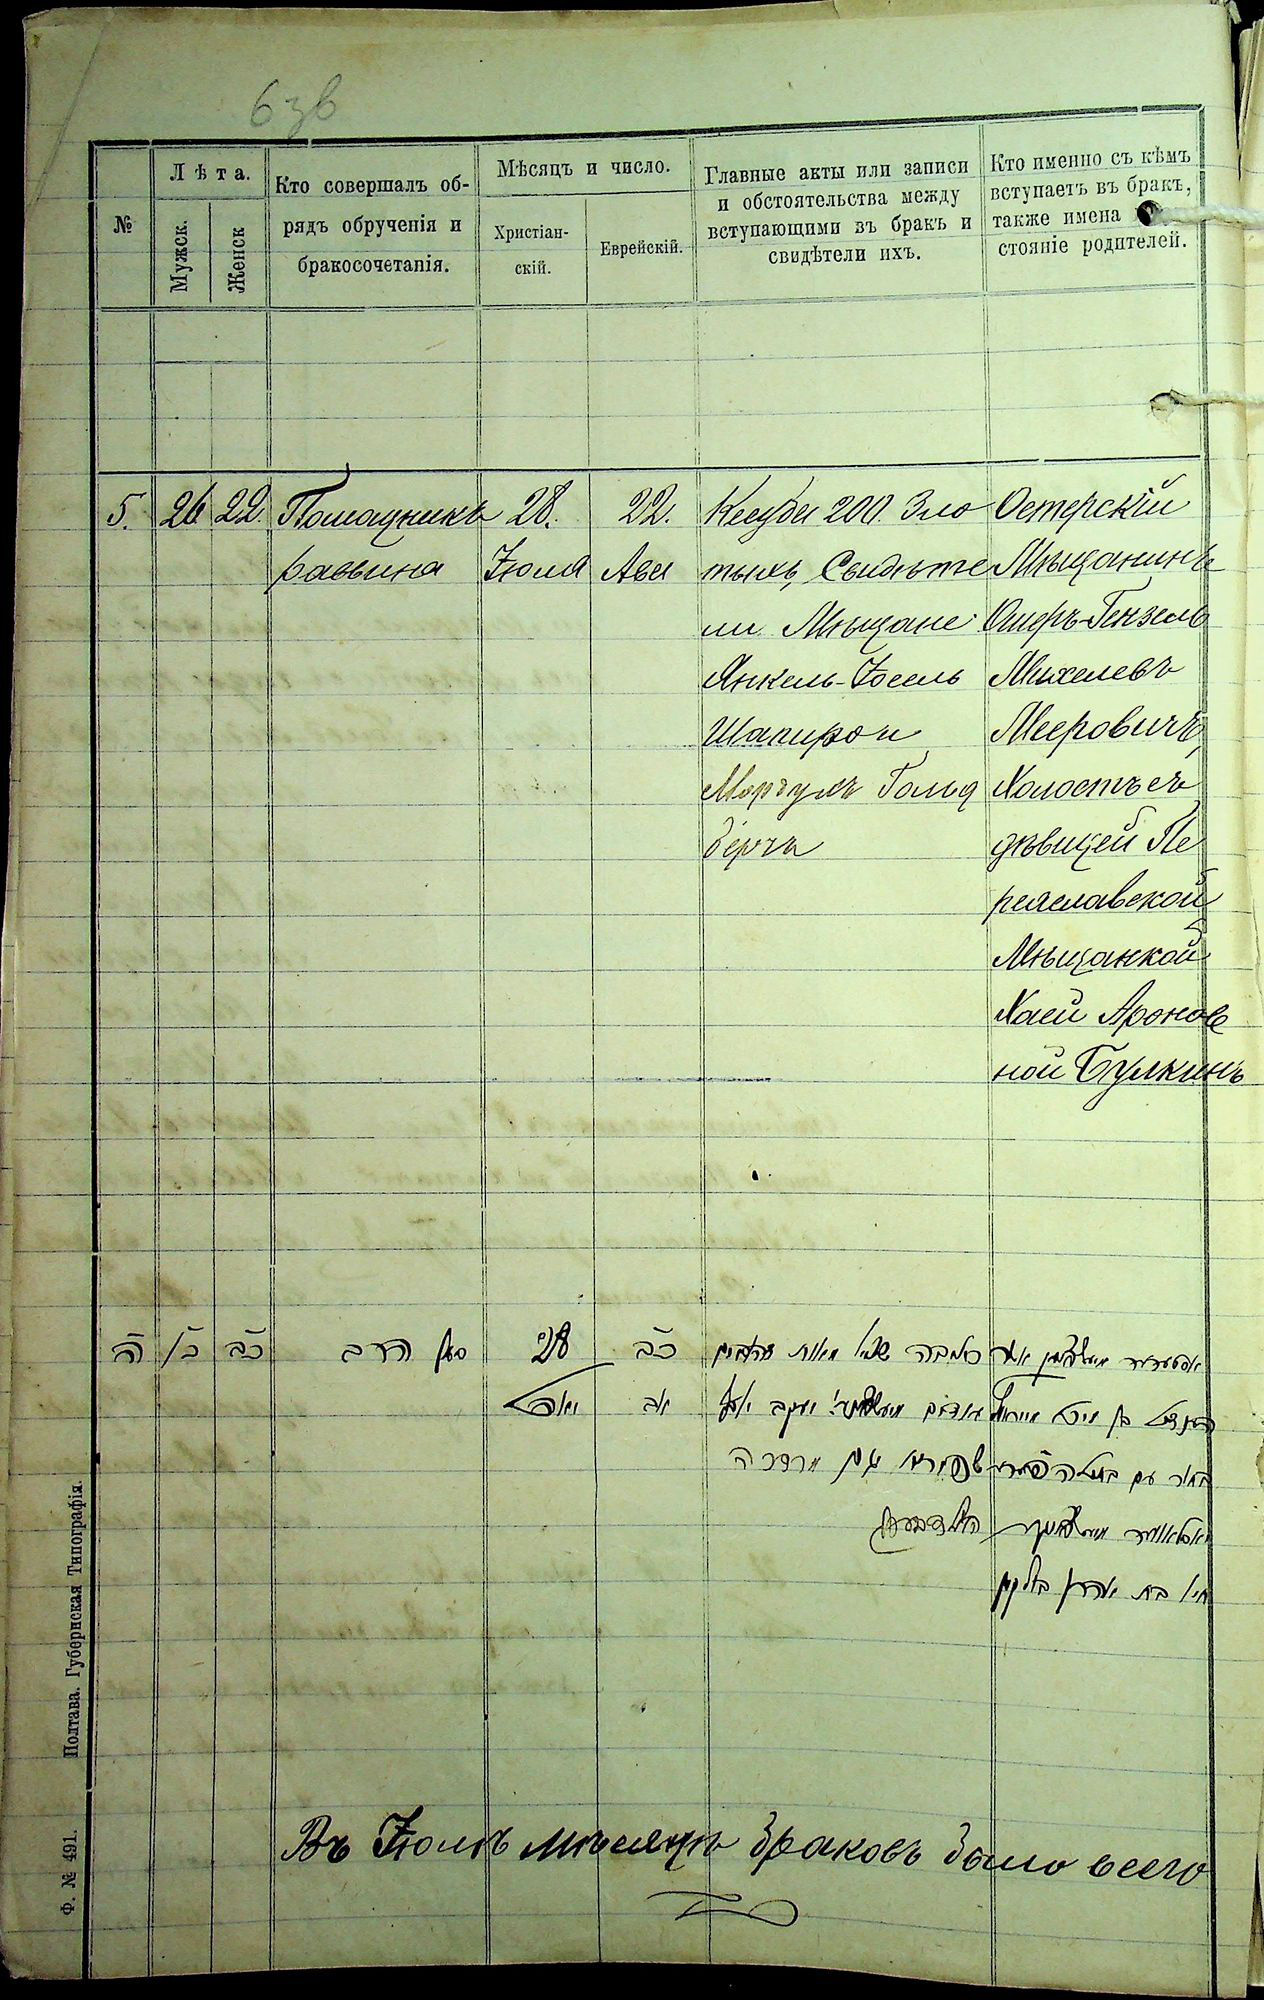 6 зв
№
Лѣта.
Мужск.
Женск
Кто совершалъ об-
рядъ обрученія и
бракосочетанія.
Мѣсяцъ и число.
Христіан-
скій.
Еврейскій.
Главные акты или записи
и обстоятельства между
вступающими въ бракъ и
свидѣтели ихъ.
Кто именно съ кѣмъ
вступаетъ въ бракъ,
также имена
стояніе родителей.
5.
26
22.
Помощникъ
раввина
28.
Іюля
22.
Ава
Кесуба 200 Зло
тыхъ, Свидѣте
ли Мѣщане
Янкель-Іосель
Шапиро и
Мордухъ Гольд
бергъ
Остерскій
Мѣщанинъ
Ошеръ-Гензель
Михелевъ
Мееровичъ,
Холостъ съ
дѣвицей Пе
реяславской
Мѣщанкой
Хаей Аронов
ной Булкинъ
ה
כו
כב
סגן הרב
28
יולי
כב
אב
מאות זהובים
יעקב יוסל
מרדכה
בן מיכל
בחור עם בתולה
חיא בת אהרן בולקין
Въ Іюлѣ мѣсяцѣ браковъ было всего
Полтава. Губернская Типографія.
Ф. № 491.